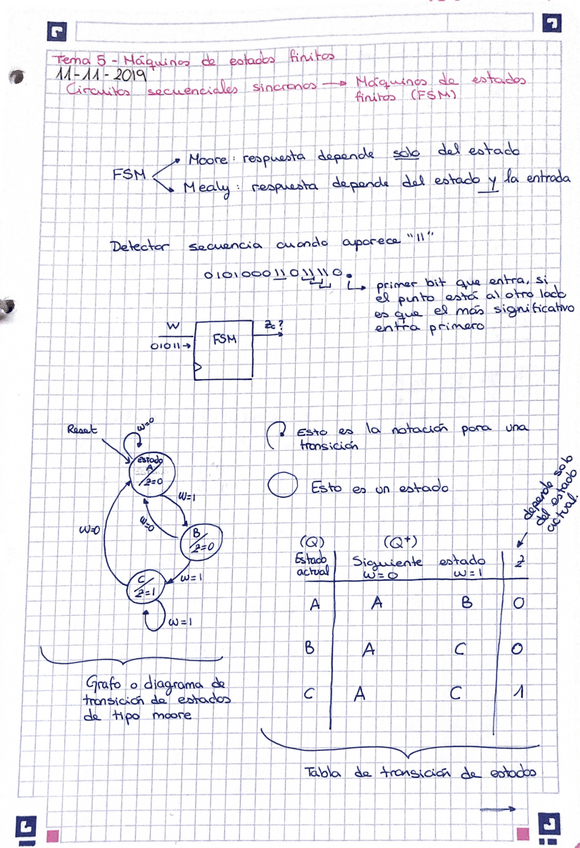 Tema 5 - Máquinas de estados finitos
11-11-2019
Circuitos secuenciales síncronos → Máquinas de estados
finitos (FSM)
FSM
Moore: respuesta depende solo del estado
Mealy: respuesta depende del estado y la entrada
Detector secuencia cuando aparece "11"
01010001101110.
primer bit que entra, si
el punto está al otro lado
es que el más significativo
entra primero
W
01011→
FSM
z?
Reset
w=0
estado
A
/z=0
w=1
w=0
w=0
B
/z=0
w=1
C
/z=1
w=1
Esto es la notación para una
transición
Esto es un estado
depende solo
del estado
actual
(Q) (Q+)
Estado Siguiente estado z
actual w=0 w=1
A A B 0
B A C 0
C A C 1
Grafo o diagrama de
transición de estados
de tipo moore
Tabla de transición de estados